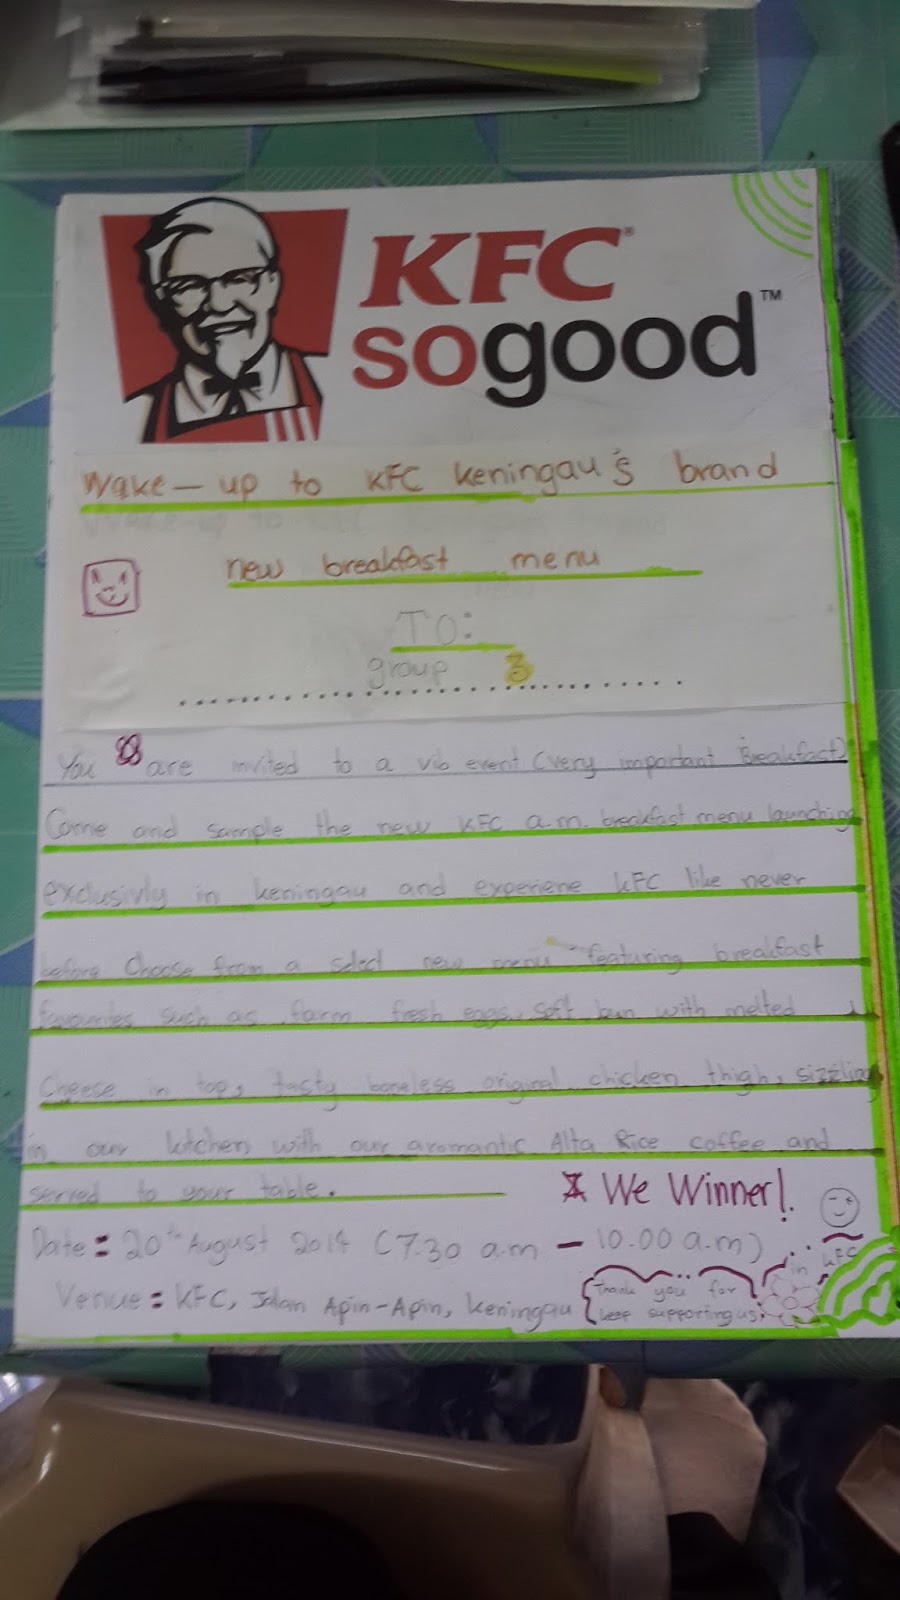 KFC®
sogood™
Wake-up to KFC keningau's brand
new breakfast menu
TO:
group 3
You are invited to a vib event (very important Breakfast)
Come and sample the new KFC a.m. breakfast menu launching
exclusivly in keningau and experiene KFC like never
before Choose from a select new menu featuring breakfast
favourites such as farm fresh eggs, soft bun with melted
Cheese in top, tasty boneless original chicken thigh, sizzling
in our kitchen with our aromantic Alta Rice coffee and
served to your table.
We Winner!
Date = 20th August 2014 (7.30 a.m - 10.00 a.m)
Venue = KFC, Jalan Apin-Apin, keningau
Thank you for
keep supporting us.
in KFC